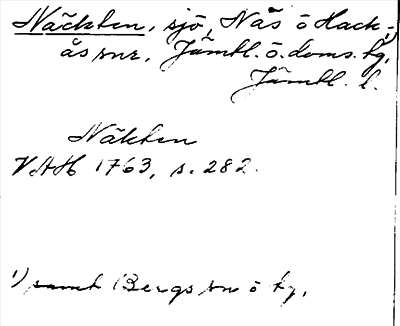 Näckten, sjö, Näs o Hack-¹⁾
ås snr, Jämtl. ö. doms. tg,
Jämtl. l.
Näkten
VAH 1763, s. 282.
¹⁾ samt Bergs sn o tg,